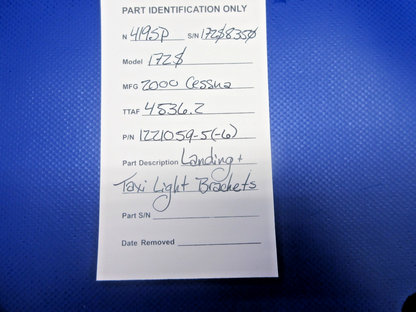 PART IDENTIFICATION ONLY
N 419SP S/N 172S8350
Model 172S
MFG 2000 Cessna
TTAF 4536.2
P/N 1221059-5(-6)
Part Description Landing +
Taxi Light Brackets
Part S/N
Date Removed